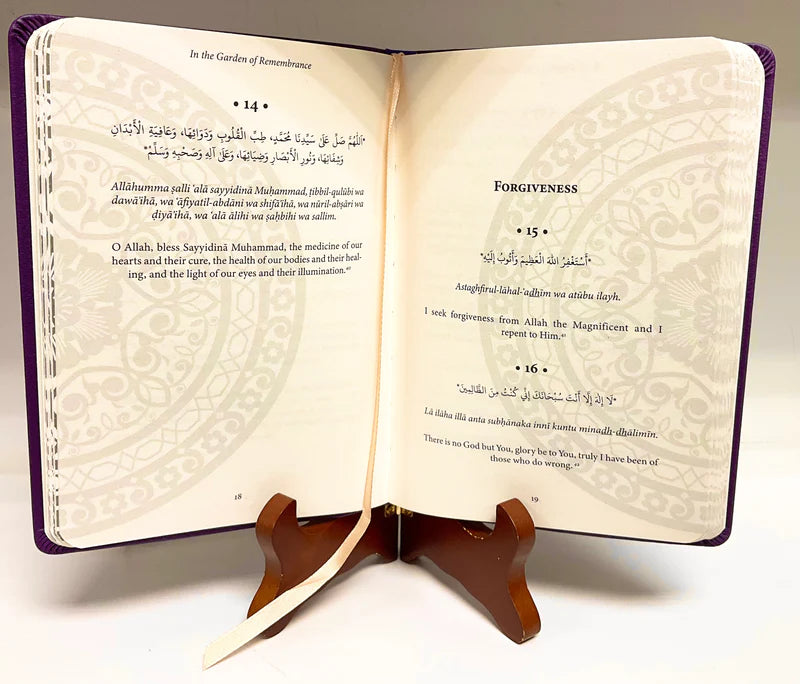 In the Garden of Remembrance
• 14 •
"اَللّٰهُمَّ صَلِّ عَلَىٰ سَيِّدِنَا مُحَمَّدٍ، طِبِّ الْقُلُوبِ وَدَوَائِهَا، وَعَافِيَةِ الْأَبْدَانِ
وَشِفَائِهَا، وَنُورِ الْأَبْصَارِ وَضِيَائِهَا، وَعَلَىٰ آلِهِ وَصَحْبِهِ وَسَلِّمْ"
Allāhumma ṣalli ʿalā sayyidinā Muḥammad, ṭibbil-qulūbi wa
dawāʾihā, wa ʿāfiyatil-abdāni wa shifāʾihā, wa nūril-abṣāri wa
ḍiyāʾihā, wa ʿalā ālihi wa ṣaḥbihi wa sallim.
O Allah, bless Sayyidinā Muhammad, the medicine of our
hearts and their cure, the health of our bodies and their heal-
ing, and the light of our eyes and their illumination.⁴⁰
18
Forgiveness
• 15 •
"أَسْتَغْفِرُ اللهَ الْعَظِيمَ وَأَتُوبُ إِلَيْهِ"
Astaghfirul-lāhal-ʿadhim wa atūbu ilayh.
I seek forgiveness from Allah the Magnificent and I
repent to Him.⁴¹
• 16 •
"لَا إِلٰهَ إِلَّا أَنْتَ سُبْحَانَكَ إِنِّي كُنْتُ مِنَ الظَّالِمِينَ"
Lā ilāha illā anta subḥānaka innī kuntu minadh-dhālimīn.
There is no God but You, glory be to You, truly I have been of
those who do wrong.⁴²
19